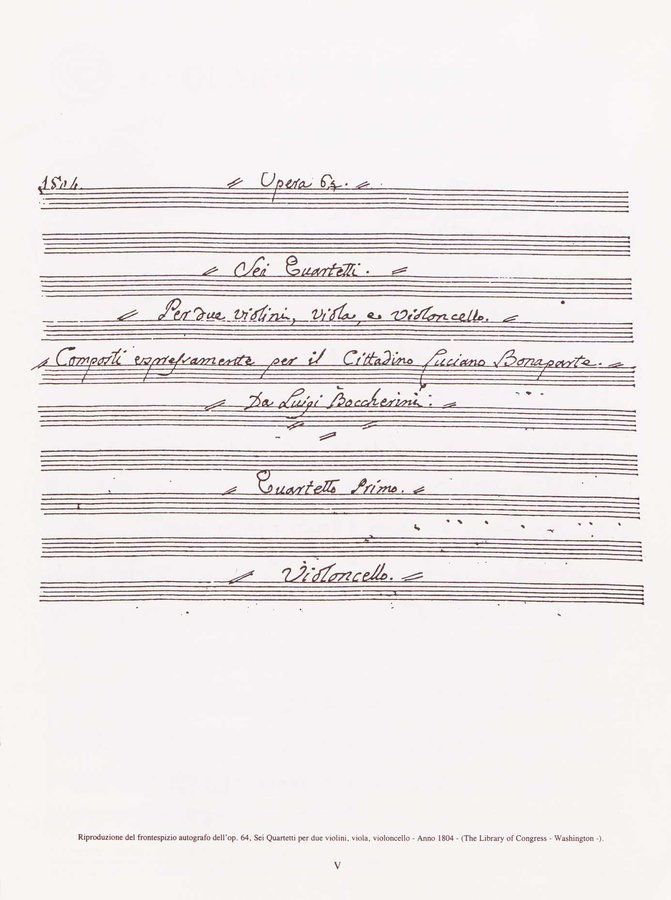 1804. Opera 64.
Sei Quartetti.
Per due violini, viola, e violoncello.
Composti espressamente per il Cittadino Luciano Bonaparte.
Da Luigi Boccherini.
Quartetto Primo.
Violoncello.
Riproduzione del frontespizio autografo dell'op. 64, Sei Quartetti per due violini, viola, violoncello - Anno 1804 - (The Library of Congress - Washington -).
V